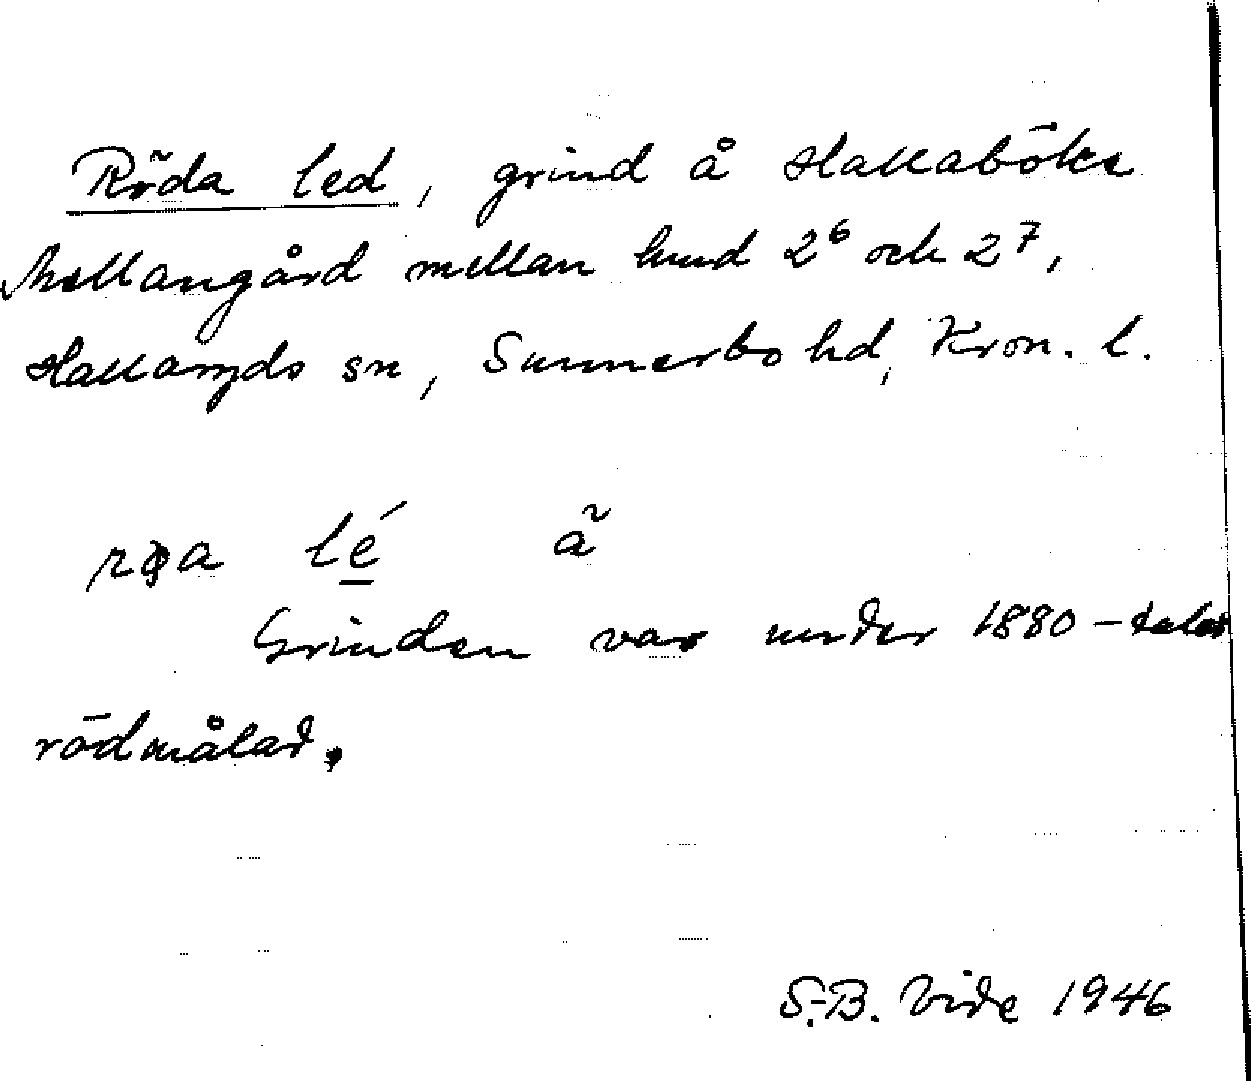 Röda led, grind å Hallaböke
Mellangård mellan hmd 2⁶ och 2⁷,
Hallaryds sn, Sunnerbo hd, Kron. l.
lé ã
Grinden var under 1880-talet
rödmålad.
S.-B. Vide 1946